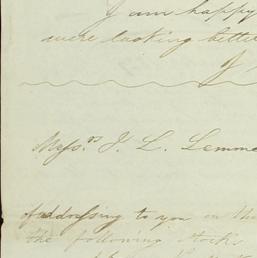 I am happy
were looking bette
J
Messrs J. L. Lemm
addressing to you on th
the following stock